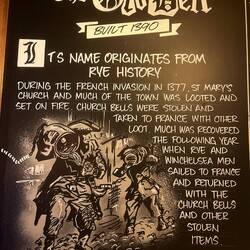 The Old Bell
BUILT 1390
ITS NAME ORIGINATES FROM
RYE HISTORY
DURING THE FRENCH INVASION IN 1377, ST MARY'S
CHURCH AND MUCH OF THE TOWN WAS LOOTED AND
SET ON FIRE. CHURCH BELLS WERE STOLEN AND
TAKEN TO FRANCE WITH OTHER
LOOT. MUCH WAS RECOVERED
THE FOLLOWING YEAR
WHEN RYE AND
WINCHELSEA MEN
SAILED TO FRANCE
AND RETURNED
WITH THE
CHURCH BELLS
AND OTHER
STOLEN
ITEMS